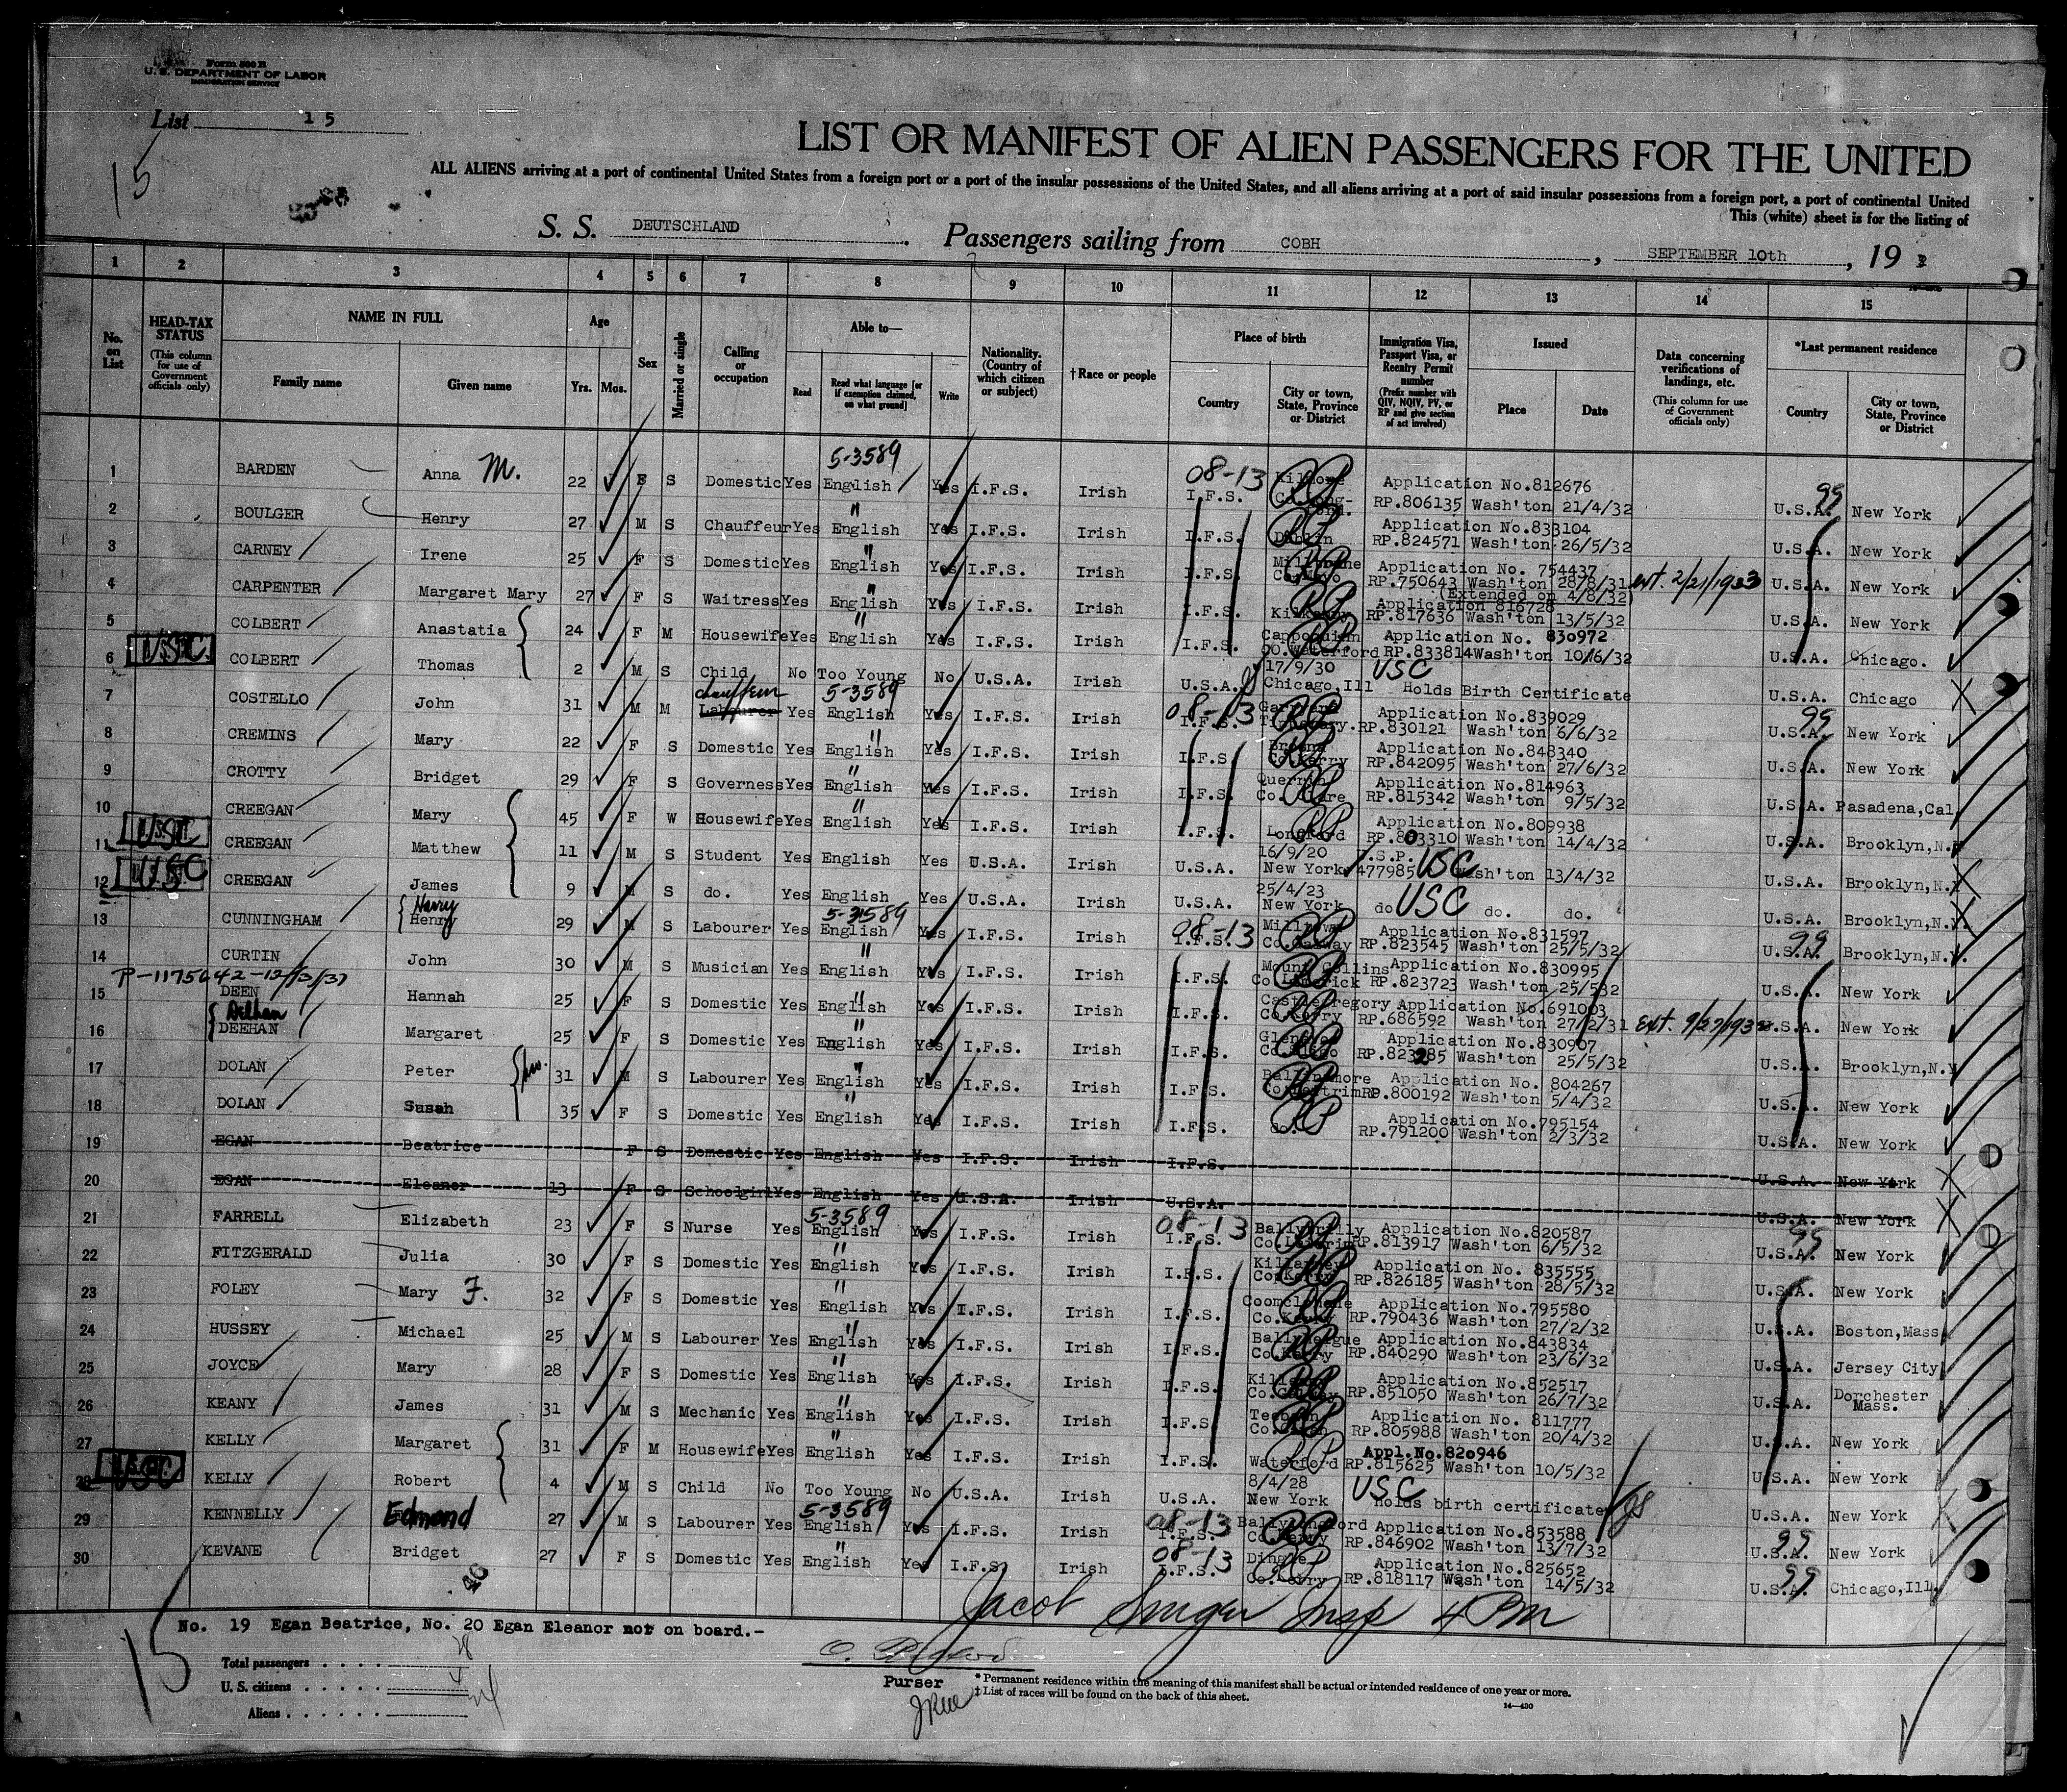 Form 500 B
U. S. DEPARTMENT OF LABOR
IMMIGRATION SERVICE
List 15
15
LIST OR MANIFEST OF ALIEN PASSENGERS FOR THE UNITED
ALL ALIENS arriving at a port of continental United States from a foreign port or a port of the insular possessions of the United States, and all aliens arriving at a port of said insular possessions from a foreign port, a port of continental United
This (white) sheet is for the listing of
S. S. DEUTSCHLAND . Passengers sailing from COBH , SEPTEMBER 10th , 19 3
1 2 3 4 5 6 7 8 9 10 11 12 13 14 15
No. on List
HEAD-TAX STATUS (This column for use of Government officials only)
NAME IN FULL
Family name Given name
Age
Yrs. Mos.
Sex
Married or single
Calling or occupation
Able to—
Read Read what language [or if exemption claimed, on what ground] Write
Nationality. (Country of which citizen or subject)
†Race or people
Place of birth
Country City or town, State, Province or District
Immigration Visa, Passport Visa, or Reentry Permit number (Prefix number with QIV, NQIV, PV, or RP and give section of act involved)
Issued
Place Date
Data concerning verifications of landings, etc. (This column for use of Government officials only)
*Last permanent residence
Country City or town, State, Province or District
1 BARDEN Anna M. 22 F S Domestic Yes 5-3589 English Yes I.F.S. Irish 08-13 I.F.S. RP Application No.812676 RP.806135 Wash'ton 21/4/32 99 U.S.A. New York
2 BOULGER Henry 27 M S Chauffeur Yes " English Yes I.F.S. Irish I.F.S. RP Dublin Application No.833104 RP.824571 Wash'ton 26/5/32 U.S.A. New York
3 CARNEY Irene 25 F S Domestic Yes " English Yes I.F.S. Irish I.F.S. RP Co.Mayo Application No. 754437 RP.750643 Wash'ton 28/8/31 (Extended on 4/8/32) ext. 2/21/1933 U.S.A. New York
4 CARPENTER Margaret Mary 27 F S Waitress Yes " English Yes I.F.S. Irish I.F.S. RP Kilkenny Application 816728 RP.817636 Wash'ton 13/5/32 U.S.A. New York
5 COLBERT Anastatia 24 F M Housewife Yes " English Yes I.F.S. Irish I.F.S. RP Cappoquinn CO.Waterford Application No. 830972 RP.833814 Wash'ton 10/6/32 U.S.A. Chicago.
6 USC COLBERT Thomas 2 M S Child No Too Young No U.S.A. Irish U.S.A. 17/9/30 Chicago,Ill USC Holds Birth Certificate U.S.A. Chicago
7 COSTELLO John 31 M M chauffeur Labourer Yes 5-3589 English Yes I.F.S. Irish 08-13 I.F.S. RP Application No.839029 RP.830121 Wash'ton 6/6/32 99 U.S.A. New York
8 CREMINS Mary 22 F S Domestic Yes " English Yes I.F.S. Irish I.F.S. RP Co.Kerry Application No.848340 RP.842095 Wash'ton 27/6/32 U.S.A. New York
9 CROTTY Bridget 29 F S Governess Yes " English Yes I.F.S. Irish I.F.S. RP Querrin Co. Clare Application No.814963 RP.815342 Wash'ton 9/5/32 U.S.A. Pasadena,Cal
10 CREEGAN Mary 45 F W Housewife Yes " English Yes I.F.S. Irish I.F.S. RP Longford Application No.809938 RP.803310 Wash'ton 14/4/32 U.S.A. Brooklyn,N.Y
11 USC CREEGAN Matthew 11 M S Student Yes English Yes U.S.A. Irish U.S.A. 16/9/20 New York U.S.P. 477985 USC Wash'ton 13/4/32 U.S.A. Brooklyn,N.Y
12 USC CREEGAN James 9 M S do. Yes English Yes U.S.A. Irish U.S.A. 25/4/23 New York do USC do. do. U.S.A. Brooklyn,N.Y.
13 CUNNINGHAM Harry Henry 29 M S Labourer Yes 5-3589 English Yes I.F.S. Irish 08-13 I.F.S. RP Co.Galway Application No.831597 RP.823545 Wash'ton 25/5/32 99 U.S.A. Brooklyn,N.Y.
14 CURTIN John 30 M S Musician Yes " English Yes I.F.S. Irish I.F.S. RP Mount Collins Co.Limerick Application No.830995 RP.823723 Wash'ton 25/5/32 U.S.A. New York
P-1175642-12/13/37
15 DEEN Hannah 25 F S Domestic Yes " English Yes I.F.S. Irish I.F.S. RP Castlegregory Co.Kerry Application No.691003 RP.686592 Wash'ton 27/2/31 Ext. U.S.A. New York
16 DEEHAN Margaret 25 F S Domestic Yes " English Yes I.F.S. Irish I.F.S. RP Co.Sligo Application No.830907 RP.823285 Wash'ton 25/5/32 U.S.A. Brooklyn,N.Y
17 DOLAN Peter 31 M S Labourer Yes " English Yes I.F.S. Irish I.F.S. RP Ballinamore Co.Leitrim Application No. 804267 RP.800192 Wash'ton 5/4/32 U.S.A. New York
18 DOLAN Susan 35 F S Domestic Yes " English Yes I.F.S. Irish I.F.S. RP do. Application No.795154 RP.791200 Wash'ton 2/3/32 U.S.A. New York
19 EGAN Beatrice F S Domestic Yes English Yes I.F.S. Irish I.F.S. U.S.A. New York
20 EGAN Eleanor 13 F S Schoolgirl Yes English Yes U.S.A. Irish U.S.A. U.S.A. New York
21 FARRELL Elizabeth 23 F S Nurse Yes 5-3589 English Yes I.F.S. Irish 08-13 I.F.S. RP Co.Leitrim Application No.820587 RP.813917 Wash'ton 6/5/32 99 U.S.A. New York
22 FITZGERALD Julia 30 F S Domestic Yes " English Yes I.F.S. Irish I.F.S. RP Killarney Co.Kerry Application No. 835555 RP.826185 Wash'ton 28/5/32 U.S.A. New York
23 FOLEY Mary F. 32 F S Domestic Yes " English Yes I.F.S. Irish I.F.S. RP Co.Kerry Application No.795580 RP.790436 Wash'ton 27/2/32 U.S.A. Boston,Mass
24 HUSSEY Michael 25 M S Labourer Yes " English Yes I.F.S. Irish I.F.S. RP Co.Kerry Application No.843834 RP.840290 Wash'ton 23/6/32 U.S.A. Jersey City
25 JOYCE Mary 28 F S Domestic Yes " English Yes I.F.S. Irish I.F.S. RP Co.Galway Application No.852517 RP.851050 Wash'ton 26/7/32 U.S.A. Dorchester Mass.
26 KEANY James 31 M S Mechanic Yes " English Yes I.F.S. Irish I.F.S RP Application No. 811777 RP.805988 Wash'ton 20/4/32 U.S.A. New York
27 KELLY Margaret 31 F M Housewife Yes " English Yes I.F.S. Irish I.F.S. RP Waterford Appl.No.820946 RP.815625 Wash'ton 10/5/32 U.S.A. New York
28 USC KELLY Robert 4 M S Child No Too Young No U.S.A. Irish U.S.A. 8/4/28 New York USC Holds birth certificate U.S.A. New York
29 KENNELLY Edmond 27 M S Labourer Yes 5-3589 English Yes I.F.S. Irish 08-13 I.F.S. RP Co.Kerry Application No.853588 RP.846902 Wash'ton 13/7/32 99 U.S.A. New York
30 KEVANE Bridget 27 F S Domestic Yes " English Yes I.F.S. Irish 08-13 I.F.S. RP Dingle Co.Kerry Application No.825652 RP.818117 Wash'ton 14/5/32 99 U.S.A. Chicago,Ill.
46
Jacob Insp 4 PM
No. 19 Egan Beatrice, No. 20 Egan Eleanor not on board.-
15
Total passengers . . . . 28
U. S. citizens . . . . . 4
Aliens . . . . . . 24
Purser
* Permanent residence within the meaning of this manifest shall be actual or intended residence of one year or more.
‡ List of races will be found on the back of this sheet.
14—430